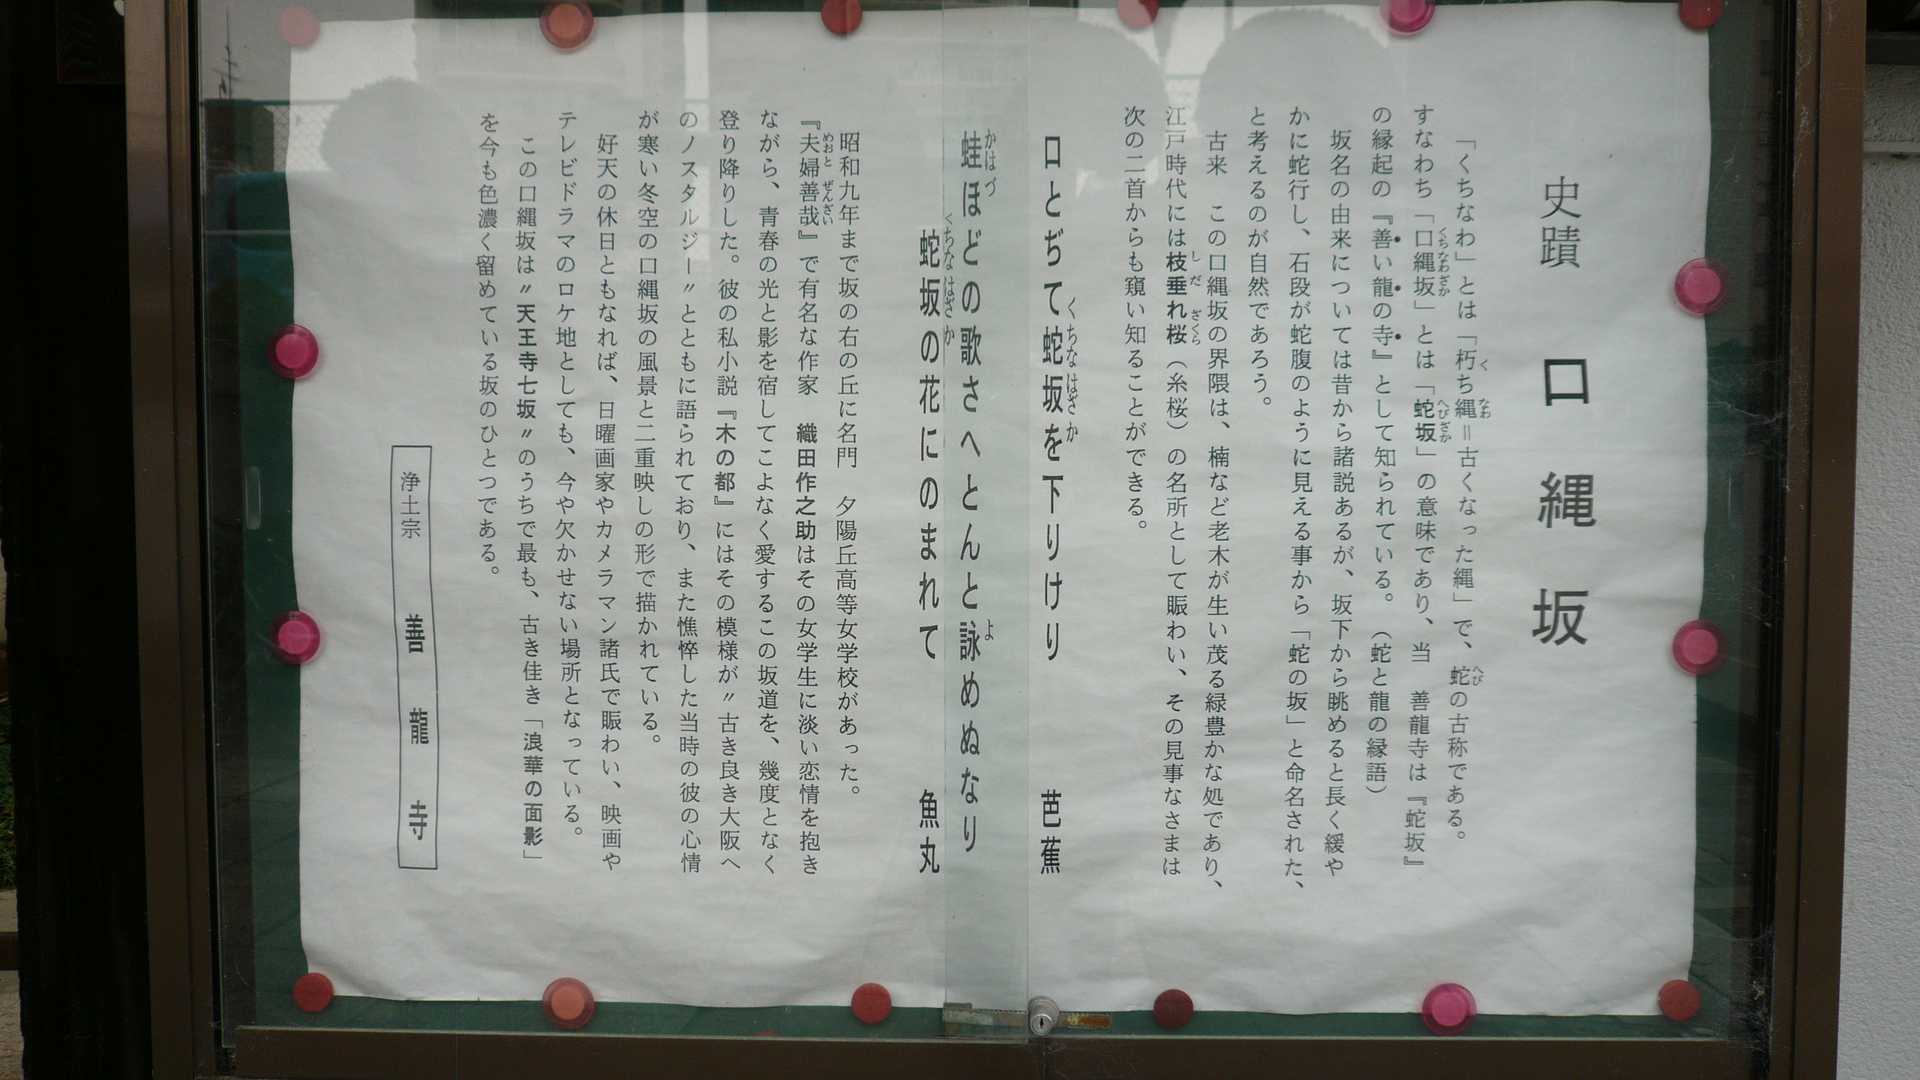 史蹟　口縄坂
「くちなわ」とは「朽ち縄＝古くなった縄」で、蛇の古称である。
すなわち「口縄坂」とは「蛇坂」の意味であり、当　善龍寺は『蛇坂』
の縁起の『善い龍の寺』として知られている。（蛇と龍の縁語）
坂名の由来については昔から諸説あるが、坂下から眺めると長く緩や
かに蛇行し、石段が蛇腹のように見える事から「蛇の坂」と命名された、
と考えるのが自然であろう。
古来　この口縄坂の界隈は、楠など老木が生い茂る緑豊かな処であり、
江戸時代には枝垂れ桜（糸桜）の名所として賑わい、その見事なさまは
次の二首からも窺い知ることができる。
口とぢて蛇坂を下りけり　芭蕉
蛙ほどの歌さへとんと詠めぬなり
蛇坂の花にのまれて　魚丸
昭和九年まで坂の右の丘に名門　夕陽丘高等女学校があった。
『夫婦善哉』で有名な作家　織田作之助はその女学生に淡い恋情を抱き
ながら、青春の光と影を宿してこよなく愛するこの坂道を、幾度となく
登り降りした。彼の私小説『木の都』にはその模様が〃古き良き大阪へ
のノスタルジー〃とともに語られており、また憔悴した当時の彼の心情
が寒い冬空の口縄坂の風景と二重映しの形で描かれている。
好天の休日ともなれば、日曜画家やカメラマン諸氏で賑わい、映画や
テレビドラマのロケ地としても、今や欠かせない場所となっている。
この口縄坂は〃天王寺七坂〃のうちで最も、古き佳き「浪華の面影」
を今も色濃く留めている坂のひとつである。
浄土宗　善龍寺